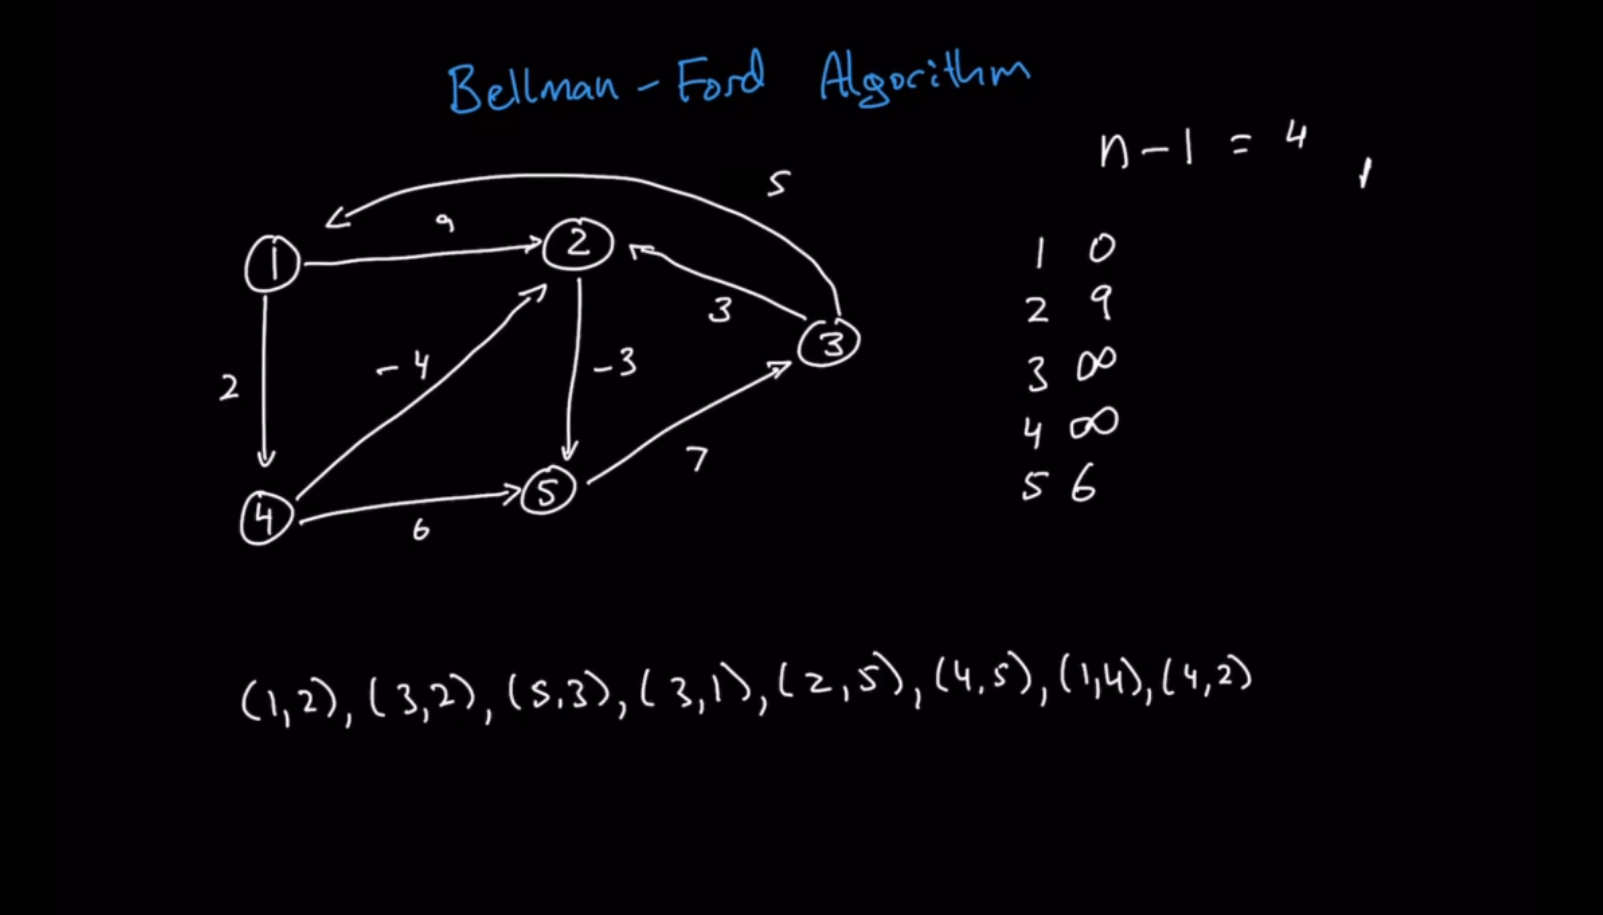 Bellman - Ford Algorithm
n - 1 = 4
5
9
1
2
3
3
-4
-3
2
7
4
5
6
1 0
2 9
3 ∞
4 ∞
5 6
(1,2), (3,2), (5,3), (3,1), (2,5), (4,5), (1,4), (4,2)